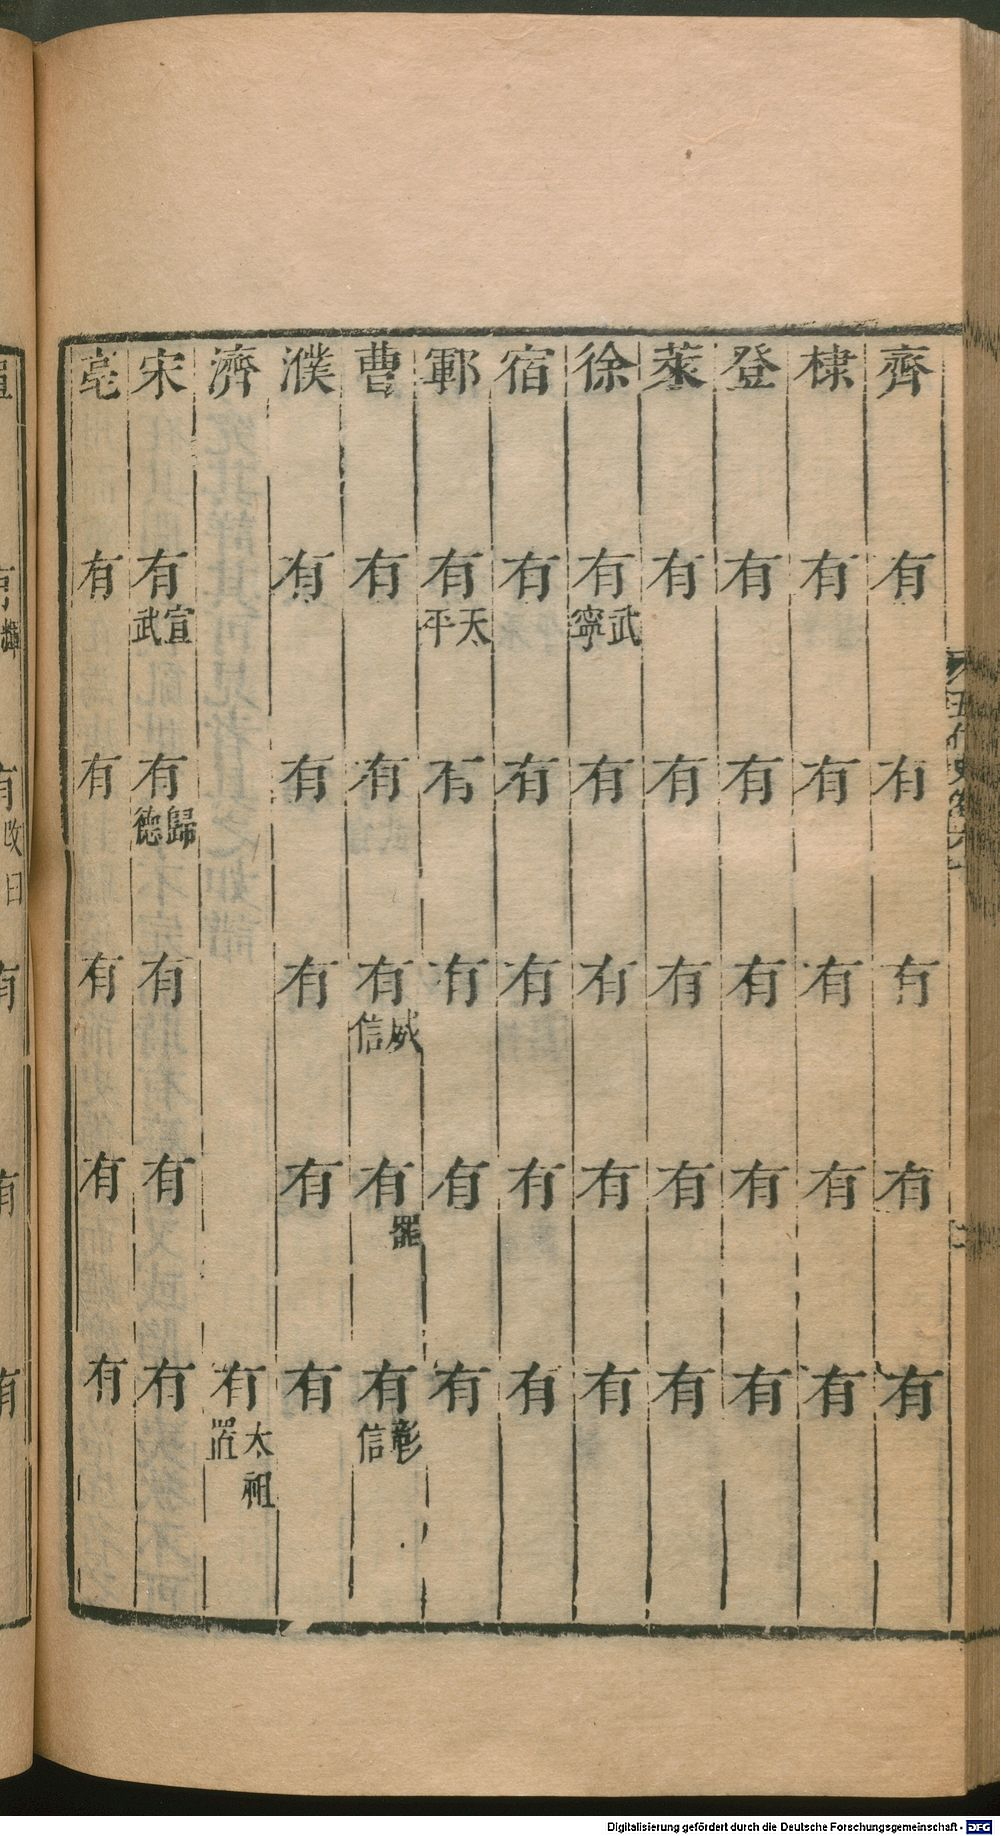 齊 有 有 有 有 有
棣 有 有 有 有 有
登 有 有 有 有 有
萊 有 有 有 有 有
徐 有武寧 有 有 有 有
宿 有 有 有 有 有
鄆 有天平 有 有 有 有
曹 有 有 有威信 有罷 有彰信
濮 有 有 有 有 有
濟 有太祖置
宋 有宣武 有歸德 有 有 有
亳 有 有 有 有 有
有改曰
有
有
有
Digitalisierung gefördert durch die Deutsche Forschungsgemeinschaft - DFG